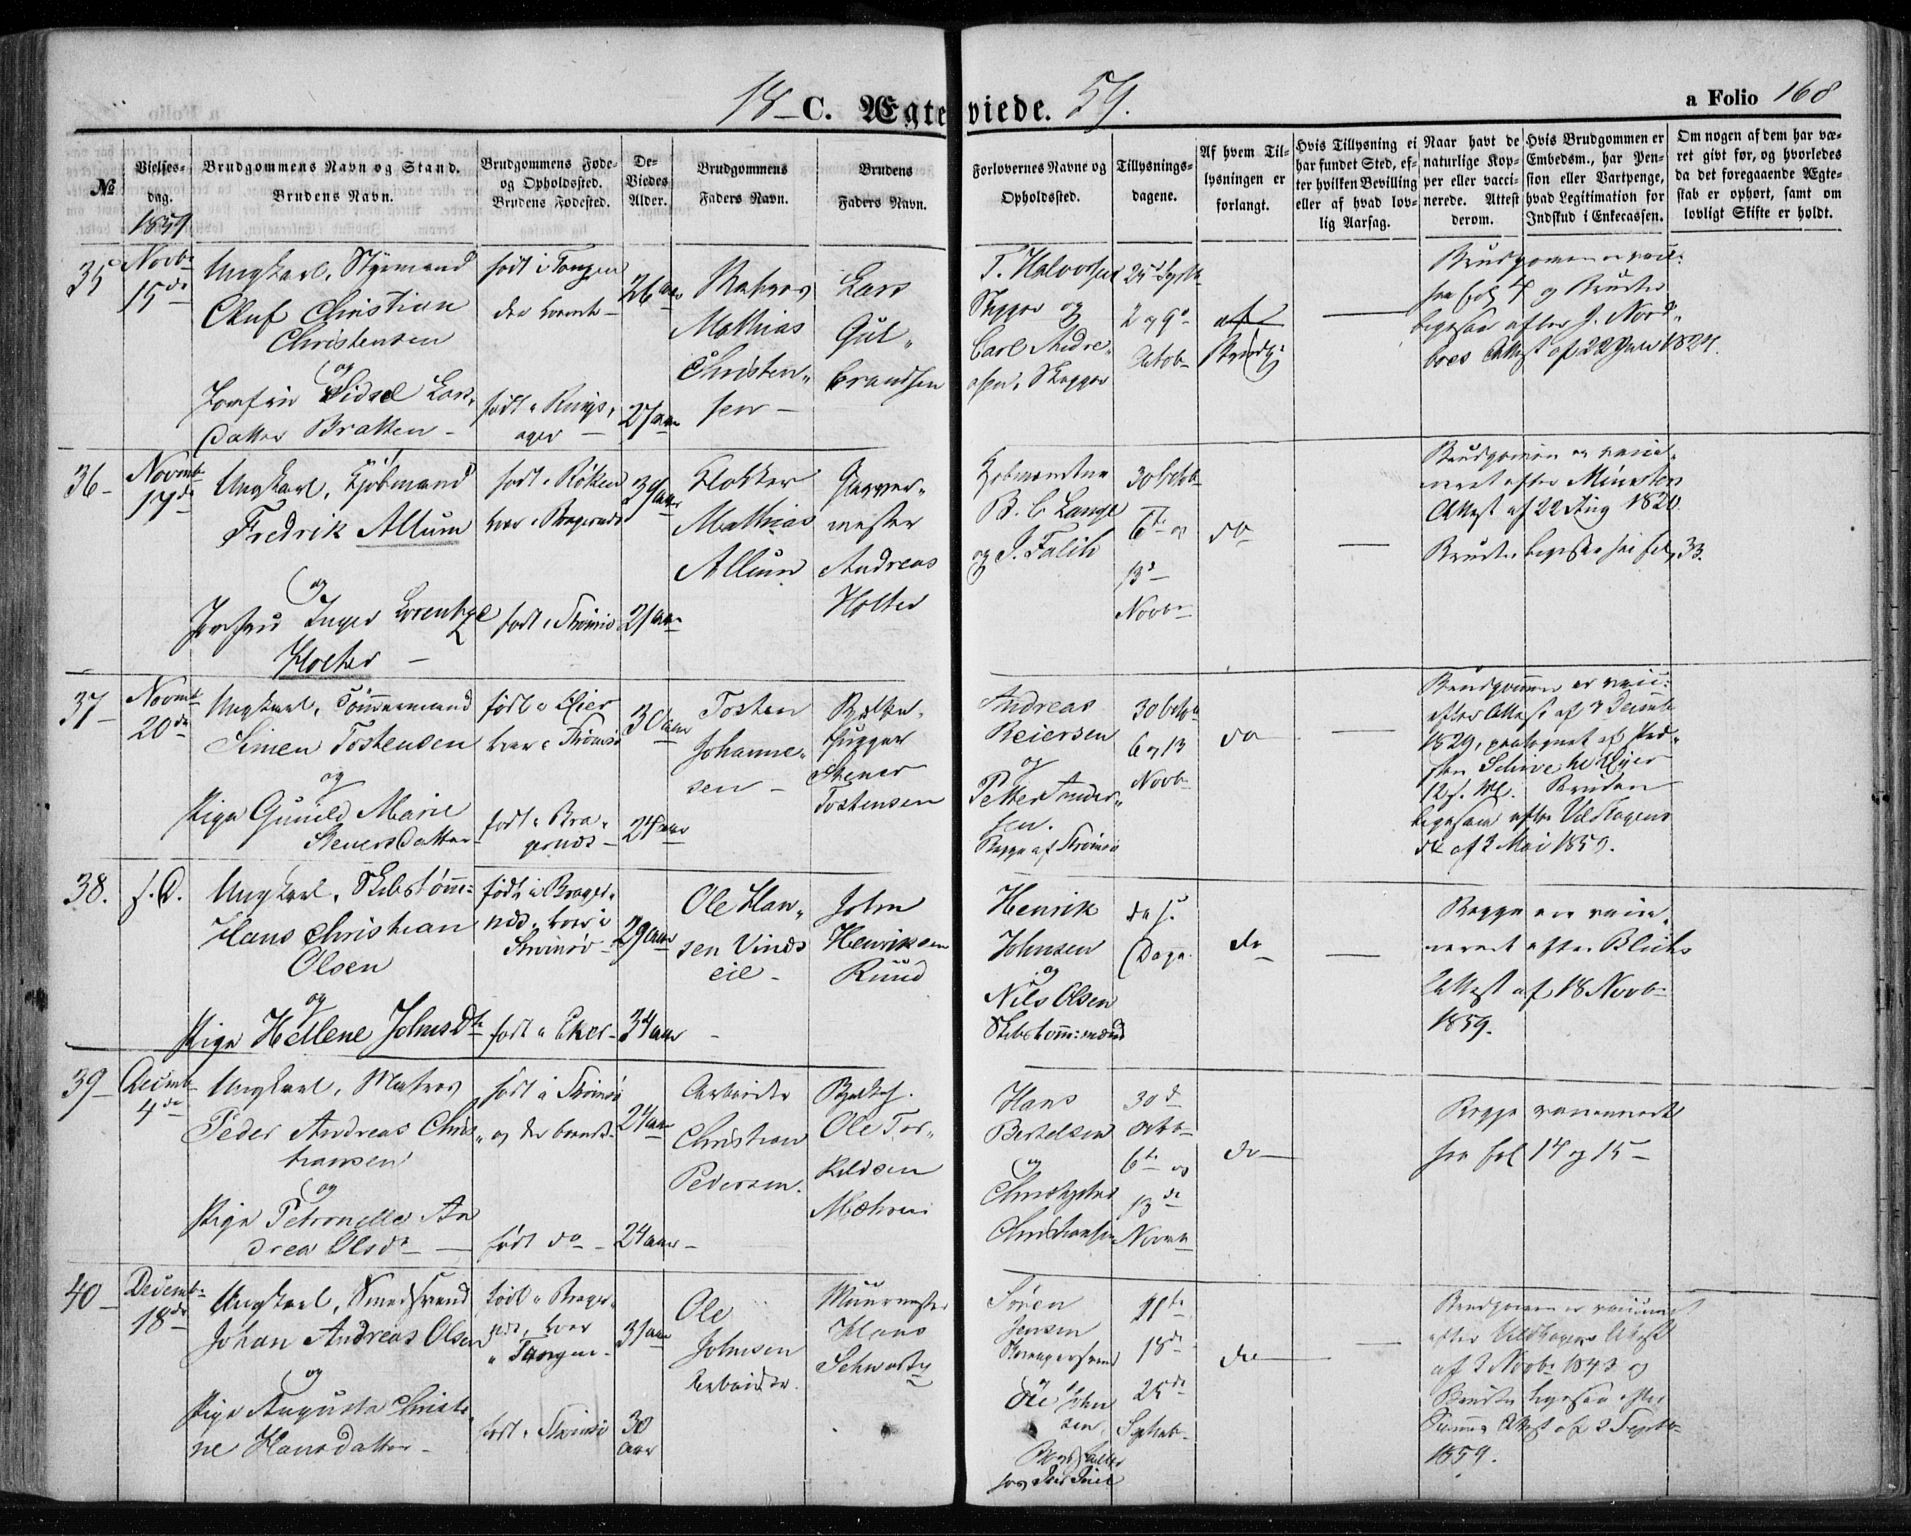 18 C. Ægteviede. 59.
a Folio 168
№
Vielses-
dag.
Brudgommens Navn og Stand.
Brudens Navn.
Brudgommens Føde-
og Opholdssted.
Brudens Fødested.
De-
Viedes
Alder.
Brudgommens
Faders Navn.
Brudens
Faders Navn.
Forlovernes Navne og
Opholdssted.
Tillysnings-
dagene.
Af hvem Til-
lysningen er
forlangt.
Hvis Tillysning ei
har fundet Sted, ef-
ter hvilken Bevilling
eller af hvad lov-
lig Aarsag.
Naar havt de
naturlige Kop-
per eller vacci-
nerede. Attest
derom.
Hvis Brudgommen er
Embedsm., har Pen-
sion eller Vartpenge,
hvad Legitimation for
Indskud i Enkecassen.
Om nogen af dem har væ-
ret givt før, og hvorledes
da det foregaaende Ægte-
skab er ophørt, samt om
lovligt Skifte er holdt.
1859
35
Novbr
15de
Ungkarl, Styrmand
Oluf Christian
Christensen
og
Jomfru Sidsel Lars
Datter Bratten
født i Tangen
født i Rings
ager
26 aar
27 aar
Matros
Mathias
Christen
sen
Lars
Gul
brandsen
T. Halvorsen
Skipper og
Carl Andre
Skipper
25de Septbr
2 og 9de
Octobr
af
Brudg
Brudgommen er vacc
fol 4 og Bruden
ligesaa efter J. Nord
boes Attest af 22
36
Novembr
17de
Ungkarl, Kjøbmand
Fredrik Allum
og
Jomfru Inger
Holter
født i Røken
født i Strømsø
39 aar
21 aar
Klokker
Mathias
Allum
Garver
mester
Andreas
Holter
Kjøbmændene
B. C. Lange
og
30 Octobr
6te og
13de
Novbr
do
Brudgommen er vacci
neret efter Münsters
Attest af 22 Aug 1820
Bruden ligesaa fol. 33.
37
Novembr
20de
Ungkarl, Tømmermand
Simen Tostensen
og
Pige Gunild Marie
Steners Datter
født i Lier
boer i Strømsø
født i Bra
gernæs
30 aar
24 aar
Tosten
Johanne
sen
hugger
Stener
Tostensen
Andreas
Reiersen
og
Petter Ander
sen.
Begge af Strømsø
30 Octobr
6 og 13
Novbr
do
Brudgommen er vacc:
efter Attest af 7 Decembr
1829,
Bruden
ligesaa efter Vildhagens
do af 2 Mai 1859.
38.
s. D.
Ungkarl, Skibstømm:
Hans Christian
Olsen
og
Pige Hellene Johnsdtr
født i Brager
næs, boer i
Strømsø
født i Eker
29 aar
34 aar
Ole Han
sen Vinds
eie
John
Henriksen
Ruud
Henrik
Johnsen
og
Nils Olsen
Skibstømmermænd
do s.
Dage
do
Begge ere vacci
nerede efter Blichs
Attest af 18 Novbr
1859.
39
Decembr
4de
Ungkarl, Matros
Peder Andreas Chris
tiansen
og
Pige Petronelle An
drea Olsdtr
født i Strømsø
født do
24 aar
24 aar
Arbeider
Christian
Pedersen.
Ole Tor
kildsen
Hans
Bertelsen
og
Christiansen
30de
Octbr
6te og
13de
Novbr
do
Begge vaccinerede
fol 14 og 15
40
Decembr
18de
Ungkarl, Smedsvend
Johan Andreas Olsen
og
Pige Augusta Christi
ne Hansdatter
født i Brager
næs, boer
i Tangen
født i Strømsø
31 aar
30
aar
Ole
Johnsen
Arbeider
Muurmester
Hans
Schwartz
Søren
Jensen
Ole John
sen
11te
18de
25de
Septbr
do
Brudgommen er vaccineret
efter Vildhagens Attest
af 2 Novbr 1843 og
Bruden ligesaa efter
Attest af 2 Septbr
1859.